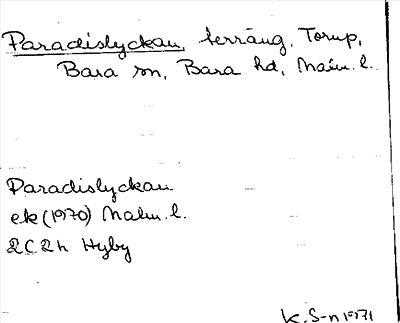 Paradislyckan, terräng, Torup,
Bara sn, Bara hd, Malm. l.
Paradislyckan
ek (1970) Malm. l.
2C 2h Hyby
K. S-n 1971